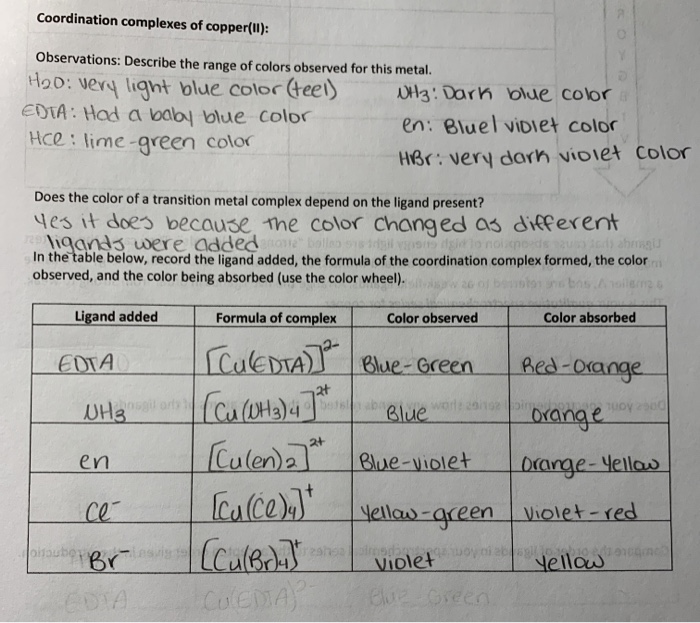 Coordination complexes of copper(II):
Observations: Describe the range of colors observed for this metal.
H2O: very light blue color (teel)
EDTA: Had a baby blue color
HCl: lime-green color
NH3: Dark blue color
en: Blue/violet color
HBr: very dark violet color
Does the color of a transition metal complex depend on the ligand present?
Yes it does because the color changed as different
ligands were added
In the table below, record the ligand added, the formula of the coordination complex formed, the color
observed, and the color being absorbed (use the color wheel).
Ligand added Formula of complex Color observed Color absorbed
EDTA [Cu(EDTA)]2- Blue-Green Red-Orange
NH3 [Cu(NH3)4]2+ Blue orange
en [Cu(en)2]2+ Blue-violet orange-yellow
Cl- [Cu(Cl)4]+ yellow-green violet-red
Br- [Cu(Br)4]+ violet yellow
EDTA Cu(EDTA)2- Blue Green